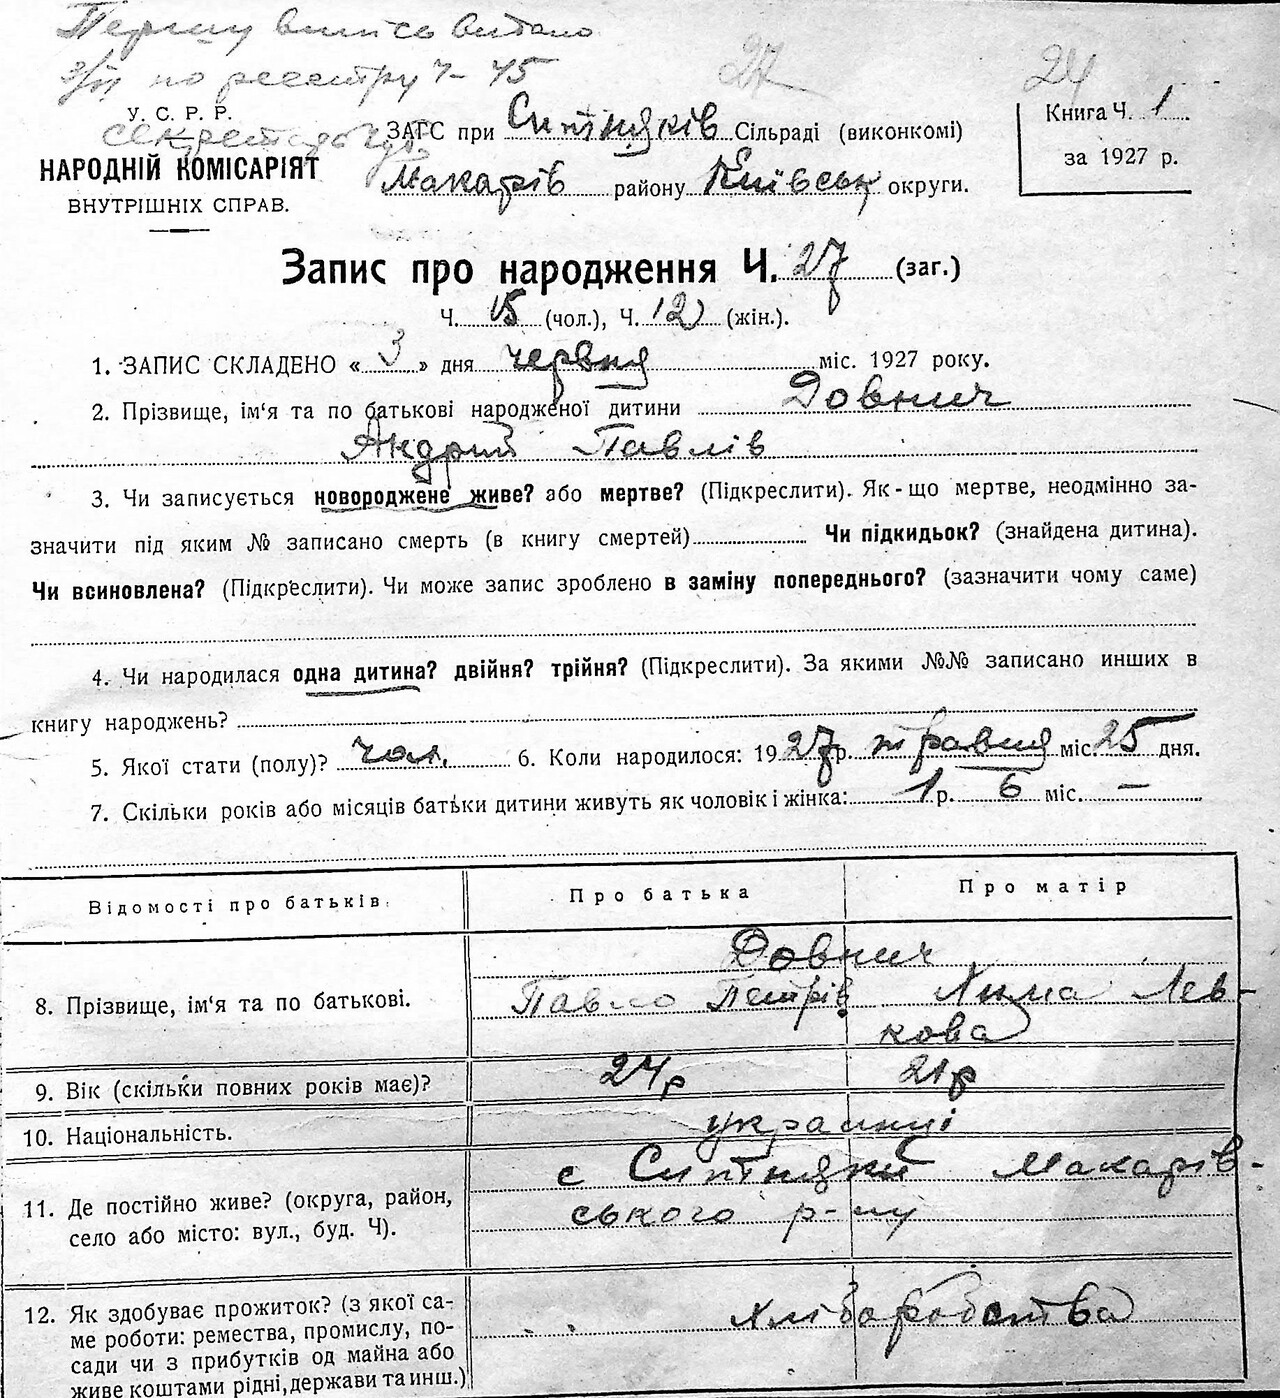 Першу випись видано
з/п по реєстру Ч- 45
секретарь
27
24
У. С. Р. Р.
НАРОДНІЙ КОМІСАРІЯТ
ВНУТРІШНІХ СПРАВ.
ЗАГС при Ситняків Сільраді (виконкомі)
Макарів району Київськ округи.
Книга Ч. 1
за 1927 р.
Запис про народження Ч. 27 (заг.)
Ч. 15 (чол.), Ч. 12 (жін.).
1. ЗАПИС СКЛАДЕНО « 3 » дня червня міс. 1927 року.
2. Прізвище, ім‘я та по батькові народженої дитини Довнич
Андрий Павлів
3. Чи записується новороджене живе? або мертве? (Підкреслити). Як-що мертве, неодмінно за-
значити під яким № записано смерть (в книгу смертей) Чи підкидьок? (знайдена дитина).
Чи всиновлена? (Підкреслити). Чи може запис зроблено в заміну попереднього? (зазначити чому саме)
4. Чи народилася одна дитина? двійня? трійня? (Підкреслити). За якими №№ записано инших в
книгу народжень?
5. Якої стати (полу)? чол. 6. Коли народилося: 1927 р. травня міс. 25 дня.
7. Скільки років або місяців батьки дитини живуть як чоловік і жінка: 1 р. 6 міс. —
Відомості про батьків.
Про батька
Про матір
8. Прізвище, ім‘я та по батькові.
Довнич
Павло Петрів
Хима Лев-
кова
9. Вік (скільки повних років має)?
24р
21р
10. Національність.
украинці
11. Де постійно живе? (округа, район,
село або місто: вул., буд. Ч).
с Ситняки Макарів-
ського р-ну
12. Як здобуває прожиток? (з якої са-
ме роботи: ремества, промислу, по-
сади чи з прибутків од майна або
живе коштами рідні, держави та инш.)
хліборобства